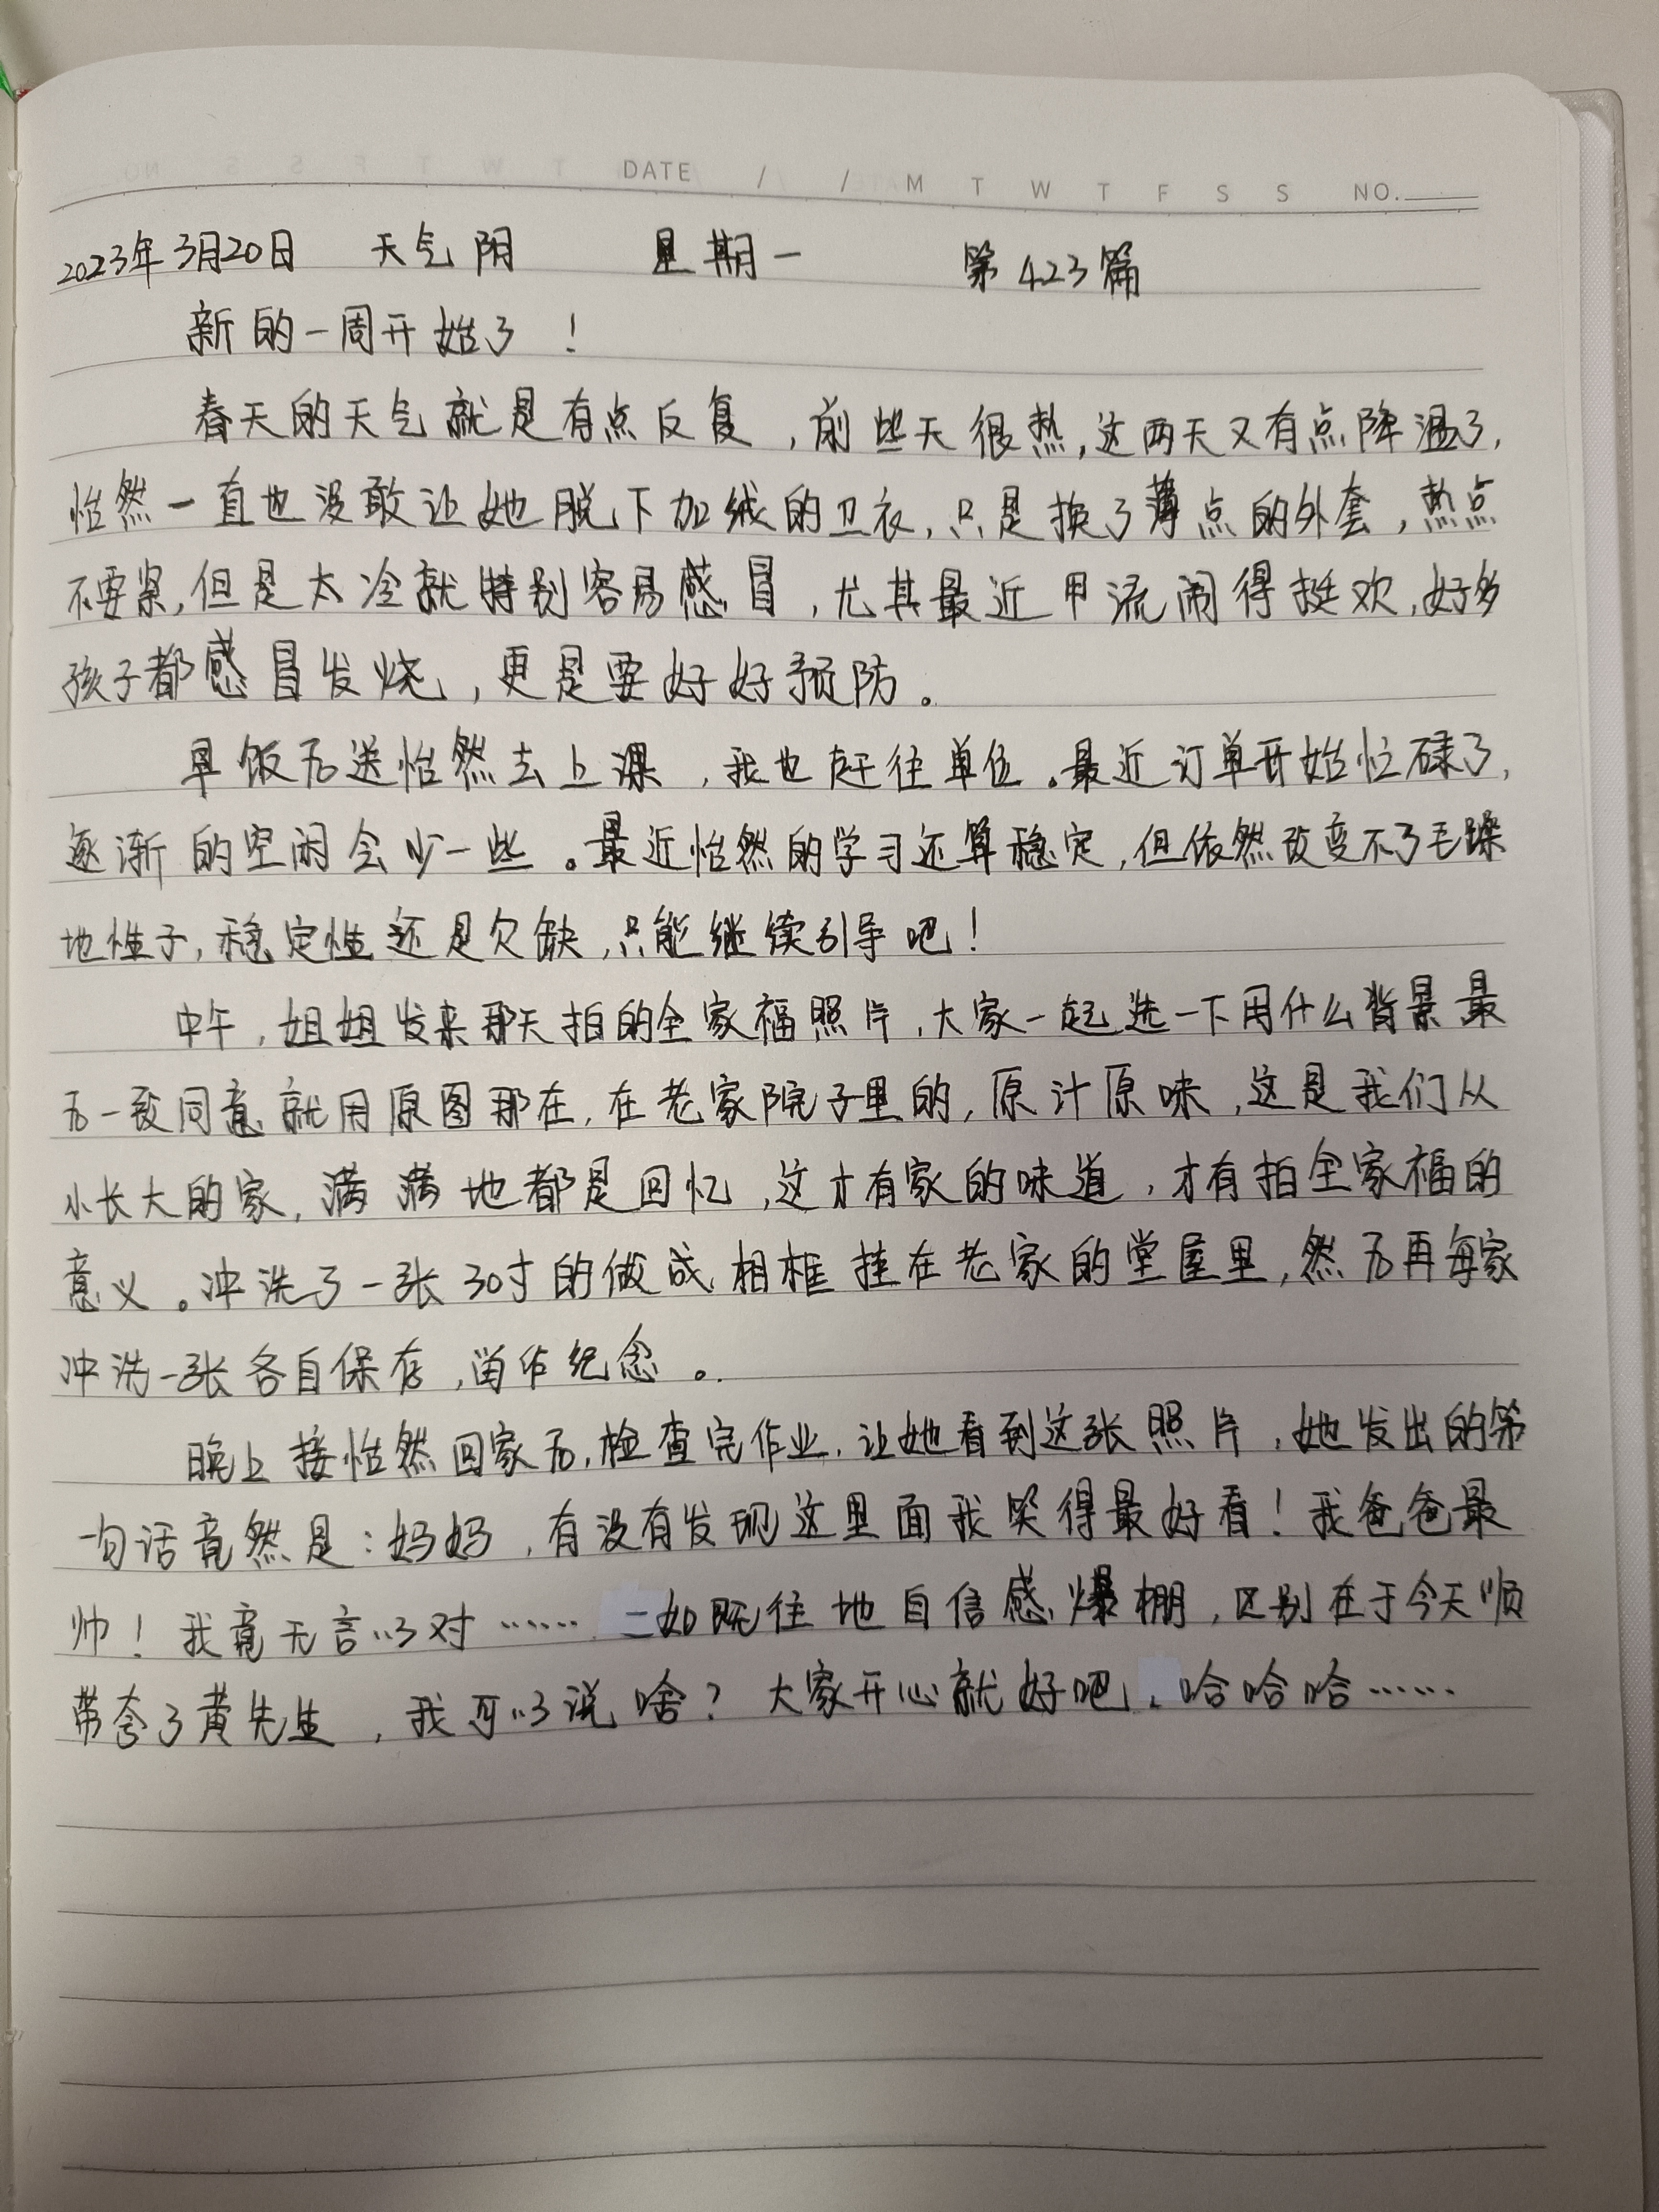 DATE / / M T W T F S S NO.
2023年3月20日 天气阴 星期一 第423篇
新的一周开始了！
春天的天气就是有点反复，前些天很热，这两天又有点降温了，
怡然一直也没敢让她脱下加绒的卫衣，只是换了薄点的外套，热点
不要紧，但是太冷就特别容易感冒，尤其最近甲流闹得挺欢，好多
孩子都感冒发烧，更是要好好预防。
早饭后送怡然去上课，我也赶往单位。最近订单开始忙碌了，
逐渐的空闲会少一些。最近怡然的学习还算稳定，但依然改变不了毛躁
地性子，稳定性还是欠缺，只能继续引导吧！
中午，姐姐发来那天拍的全家福照片，大家一起选一下用什么背景最
后一致同意就用原图那在，在老家院子里的，原汁原味，这是我们从
小长大的家，满满地都是回忆，这才有家的味道，才有拍全家福的
意义。冲洗了一张30寸的做成相框挂在老家的堂屋里，然后再每家
冲洗一张各自保存，留作纪念。
晚上接怡然回家后，检查完作业，让她看到这张照片，她发出的第
一句话竟然是：妈妈，有没有发现这里面我笑得最好看！我爸爸最
帅！我竟无言以对……一如既往地自信感爆棚，区别在于今天顺
带夸了黄先生，我可以说啥？大家开心就好吧，哈哈哈……